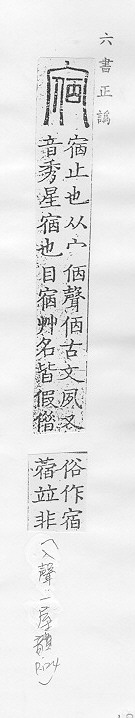 六書正譌
宿止也从宀𠈇聲𠈇古文夙又
音秀星宿也目宿艸名皆假借
俗作宿
蓿竝非
(入聲.一屋韻 P.124)